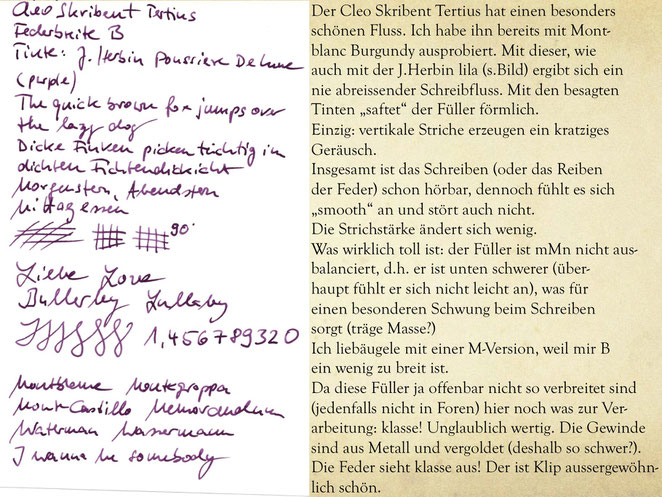 Cleo Skribent Tertius
Federbreite B
Tinte: J. Herbin Poussiere De Lune
(purple)
The quick brown fox jumps over
the lazy dog
Dicke Finken picken tüchtig im
dichten Fichtendickicht
Morgenstern, Abendstern
Mittagessen
90°
Liebe Love
Bullerby Lullaby
1,456789320
Montblanc Montegrappa
Monte Castillo Memorandum
Waterman Wassermann
I wanna be somebody
Der Cleo Skribent Tertius hat einen besonders
schönen Fluss. Ich habe ihn bereits mit Mont-
blanc Burgundy ausprobiert. Mit dieser, wie
auch mit der J.Herbin lila (s.Bild) ergibt sich ein
nie abreissender Schreibfluss. Mit den besagten
Tinten „saftet“ der Füller förmlich.
Einzig: vertikale Striche erzeugen ein kratziges
Geräusch.
Insgesamt ist das Schreiben (oder das Reiben
der Feder) schon hörbar, dennoch fühlt es sich
„smooth“ an und stört auch nicht.
Die Strichstärke ändert sich wenig.
Was wirklich toll ist: der Füller ist mMn nicht aus-
balanciert, d.h. er ist unten schwerer (über-
haupt fühlt er sich nicht leicht an), was für
einen besonderen Schwung beim Schreiben
sorgt (träge Masse?)
Ich liebäugele mit einer M-Version, weil mir B
ein wenig zu breit ist.
Da diese Füller ja offenbar nicht so verbreitet sind
(jedenfalls nicht in Foren) hier noch was zur Ver-
arbeitung: klasse! Unglaublich wertig. Die Gewinde
sind aus Metall und vergoldet (deshalb so schwer?).
Die Feder sieht klasse aus! Der ist Klip aussergewöhn-
lich schön.